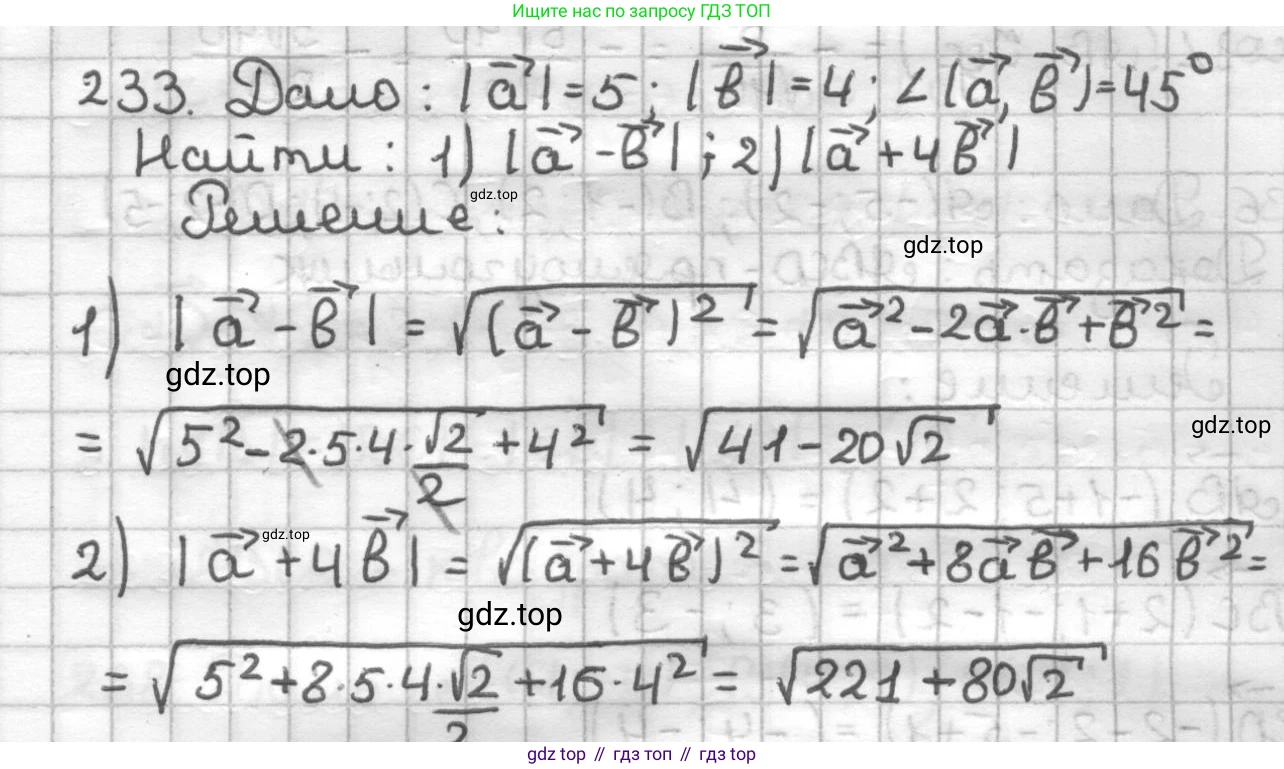 Ищите нас по запросу ГДЗ ТОП
233. Дано: |a⃗|=5; |b⃗|=4; ∠(a⃗, b⃗)=45°
Найти: 1) |a⃗ -b⃗|; 2) |a⃗ +4b⃗|
gdz.top
Решение:
gdz.top
1) |a⃗ - b⃗| = √((a⃗ - b⃗)²) = √(a⃗² - 2a⃗·b⃗ + b⃗²) =
gdz.top
= √(5² - 2·5·4·√2/2 + 4²) = √(41 - 20√2)
gdz.top
2) |a⃗ + 4b⃗| = √((a⃗ + 4b⃗)²) = √(a⃗² + 8a⃗b⃗ + 16b⃗²) =
gdz.top
gdz.top
= √(5² + 8·5·4·√2/2 + 16·4²) = √(221 + 80√2)
gdz top // гдз топ // гдз top